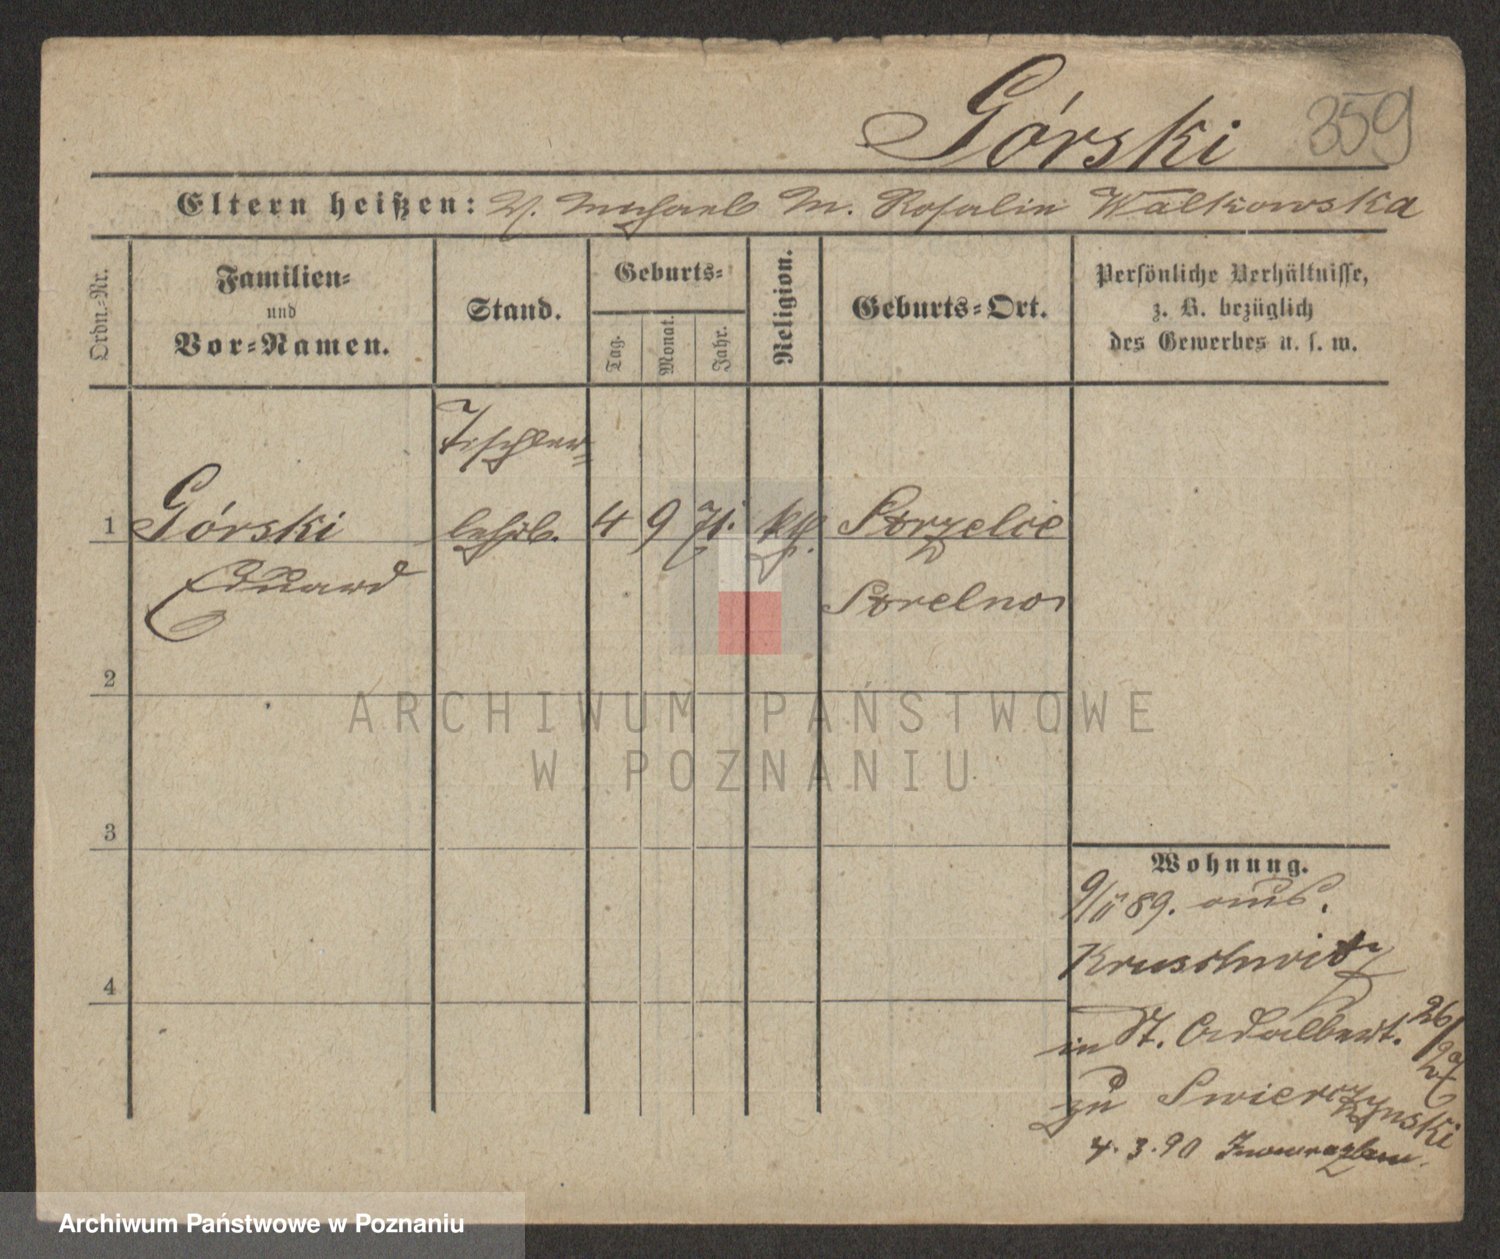 Górski 359
Eltern heißen: V. Michael M. Rosalie Walkowska
Ordn.-Nr.
Familien-
und
Vor-Namen.
Stand.
Geburts-
Tag.
Monat.
Jahr.
Religion.
Geburts-Ort.
Persönliche Verhältnisse,
z. B. bezüglich
des Gewerbes u. s. w.
Tischler-
1 Górski lehrl. 4 9 71. kth. Strzelce
Eduard Strelno
2
3
4
Wohnung.
9/11 89. aus.
Kruschwitz
in St. Adalbert. 26/
zu Swierczynski
4.3.90 Inowrazlaw.
ARCHIWUM PAŃSTWOWE
W POZNANIU
Archiwum Państwowe w Poznaniu